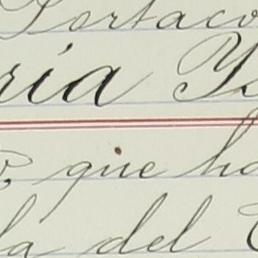 Portaco
ría Y
que ha
la del